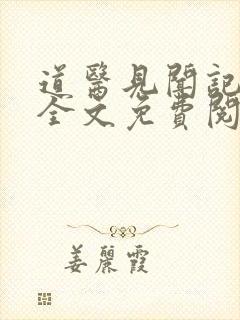 道醫見聞記
全文免費閱
姜麗霞